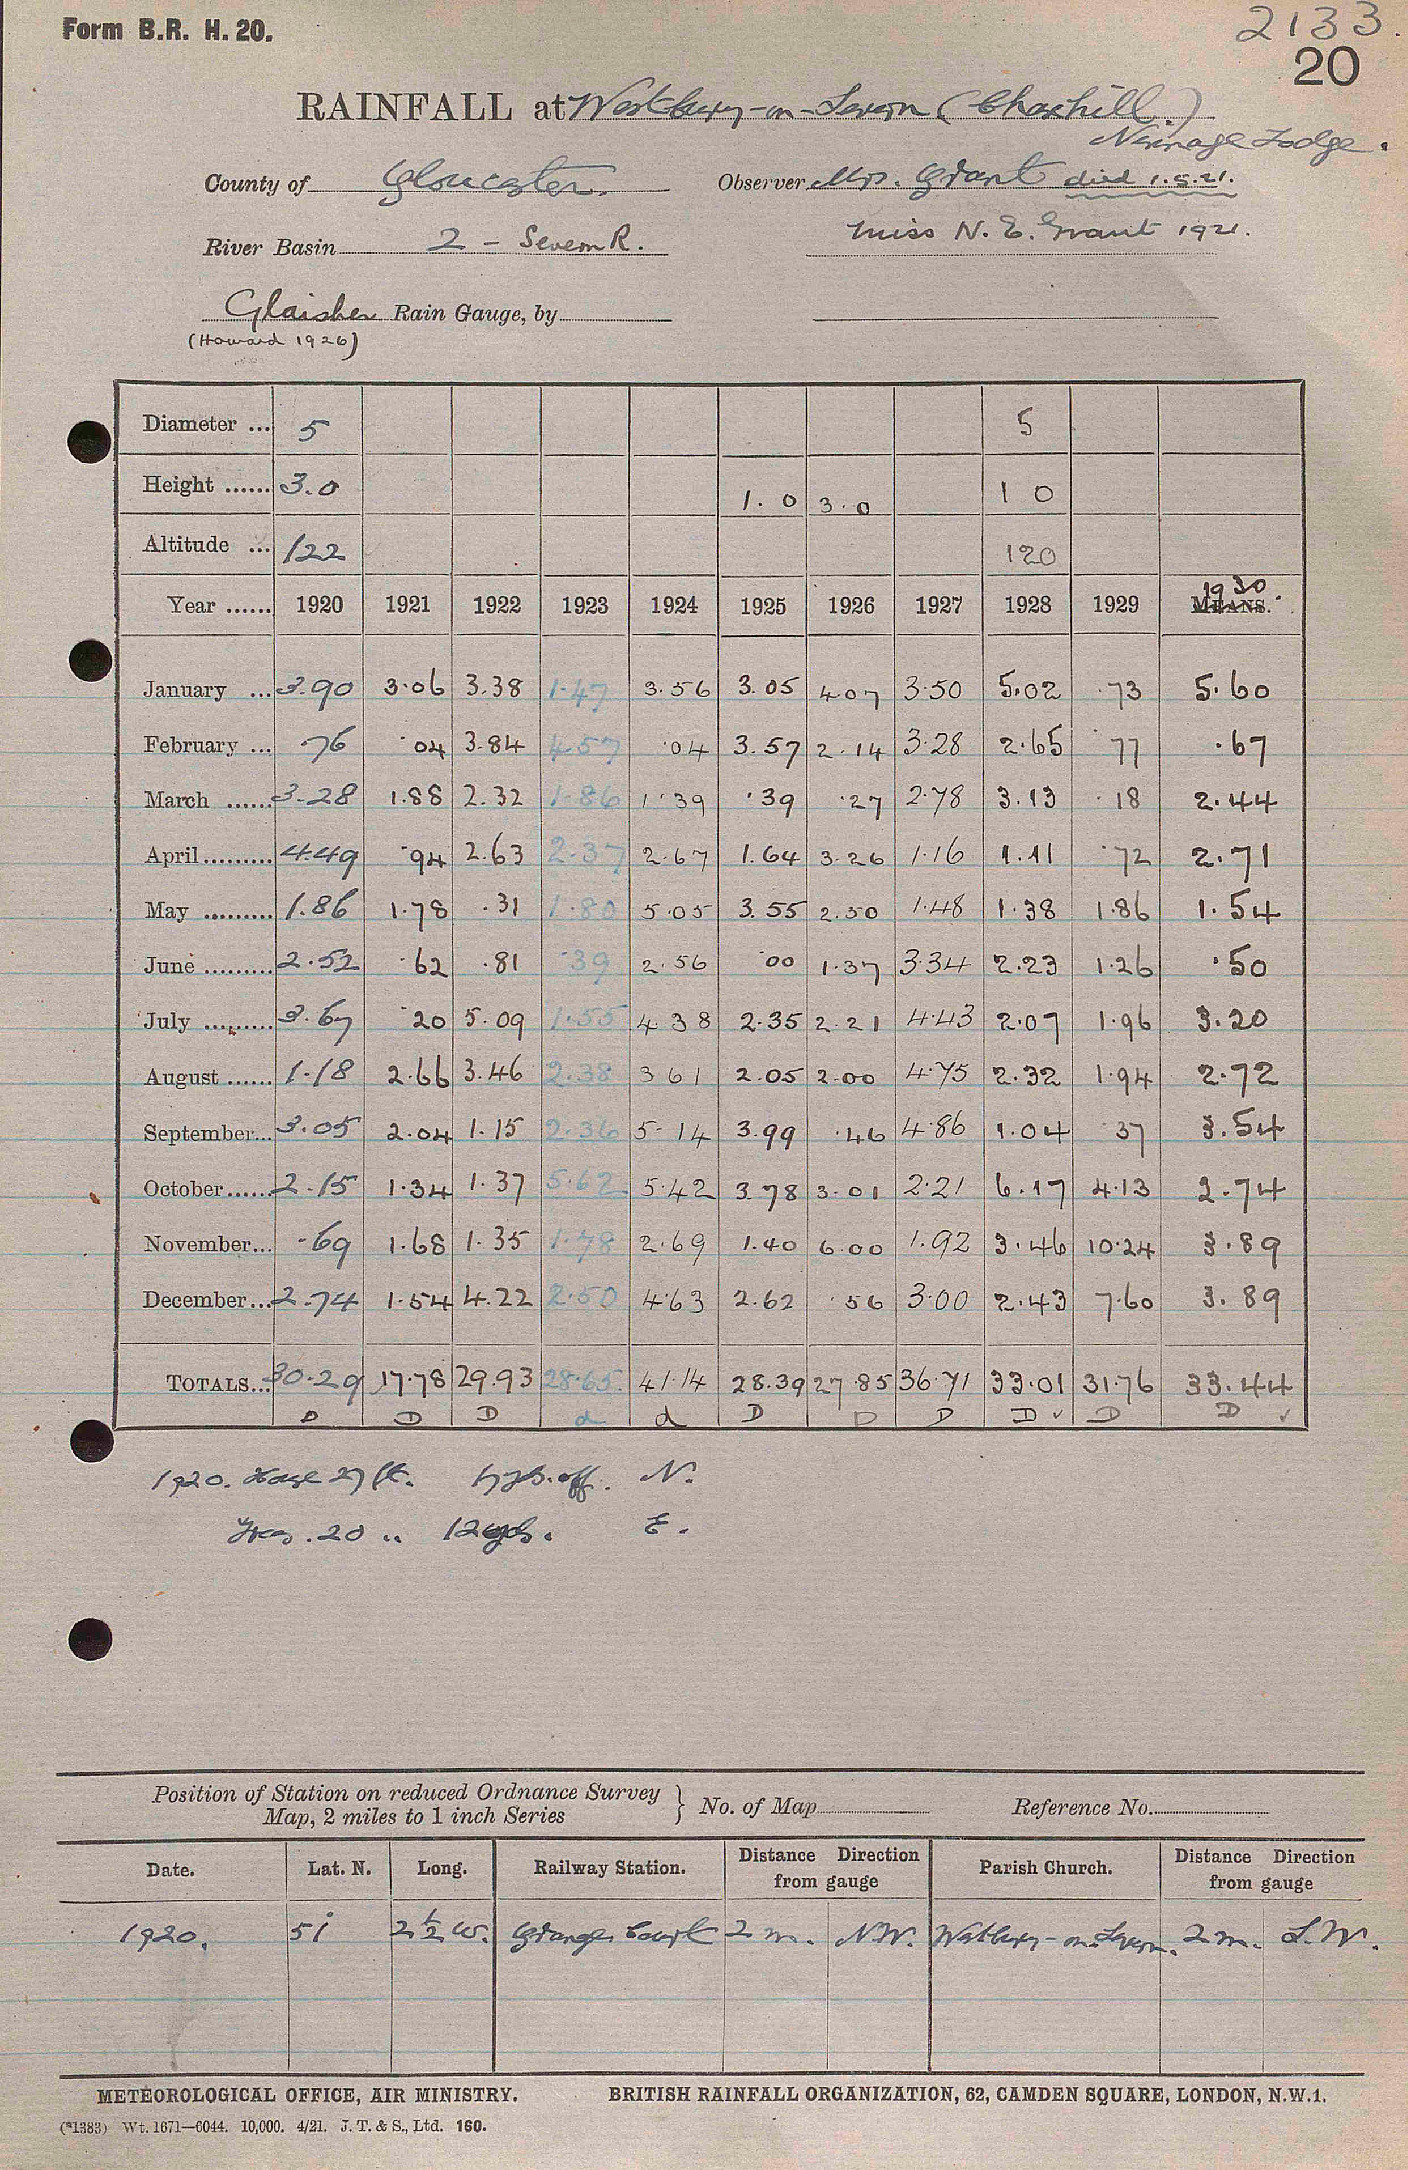 Form B.R. H. 20.
2133.
20
RAINFALL at Westbury-on-Severn (Chaxhill.)
Lodge.
County of Gloucester.
Observer Mrs. Grant died 1.5.21.
River Basin 2 - Severn R.
Miss N. E. Grant 1921.
Glaisher Rain Gauge, by
(Howard 1926)
Diameter ... 5 5
Height ...... 3.0 1.0 3.0 1 0
Altitude ... 122 120
Year ...... 1920 1921 1922 1923 1924 1925 1926 1927 1928 1929 MEANS. 1930
January ... 3.90 3.06 3.38 1.47 3.56 3.05 4.07 3.50 5.02 .73 5.60
February ... .76 .04 3.84 4.57 .04 3.57 2.14 3.28 2.65 .77 .67
March ...... 3.28 1.88 2.32 1.86 1.39 .39 .27 2.78 3.13 .18 2.44
April ......... 4.49 .94 2.63 2.37 2.67 1.64 3.26 1.16 1.11 .72 2.71
May ......... 1.86 1.78 .31 1.80 5.05 3.55 2.50 1.48 1.38 1.86 1.54
June ......... 2.52 .62 .81 .39 2.56 .00 1.37 3.34 2.23 1.26 .50
July ......... 3.67 .20 5.09 1.55 4.38 2.35 2.21 4.43 2.07 1.96 3.20
August ...... 1.18 2.66 3.46 2.38 3 61 2.05 2.00 4.75 2.32 1.94 2.72
September... 3.05 2.04 1.15 2.36 5.14 3.99 .46 4.86 1.04 .37 3.54
October ...... 2.15 1.34 1.37 5.62 5.42 3.78 3.01 2.21 6.17 4.13 2.74
November... .69 1.68 1.35 1.78 2.69 1.40 6.00 1.92 3.46 10.24 3.89
December... 2.74 1.54 4.22 2.50 4.63 2.62 .56 3.00 2.43 7.60 3.89
TOTALS... 30.29 17.78 29.93 28.65 41.14 28.39 27.85 36.71 33.01 31.76 33.44
D D D d d D D D D ✓ D D ✓
1920. 27 ft. off. N.
20 " 12 yds. E.
Position of Station on reduced Ordnance Survey
Map, 2 miles to 1 inch Series } No. of Map Reference No.
Date. Lat. N. Long. Railway Station. Distance Direction from gauge Parish Church. Distance Direction from gauge
1920. 51 2½ W. Grange Court 2 m. N.W. Westbury-on-Severn. 2 m. S.W.
METEOROLOGICAL OFFICE, AIR MINISTRY. BRITISH RAINFALL ORGANIZATION, 62, CAMDEN SQUARE, LONDON, N.W.1.
(*1383) Wt. 1671—6044. 10,000. 4/21. J. T. & S., Ltd. 160.